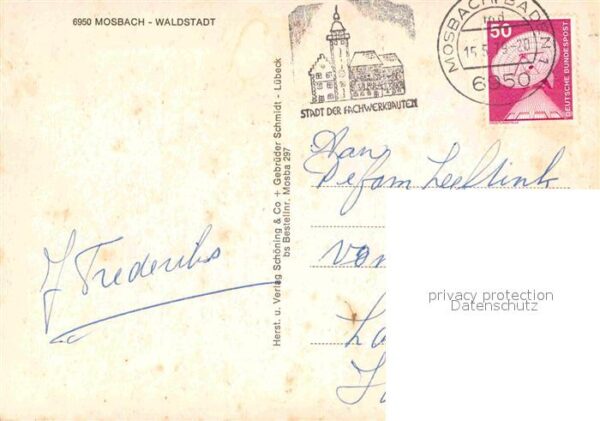 6950 MOSBACH - WALDSTADT
STADT DER FACHWERKBAUTEN
MOSBACH, BADEN 1
15.5.
-20
6950
50
DEUTSCHE BUNDESPOST
Herst. u. Verlag Schöning & Co + Gebrüder Schmidt - Lübeck
bs Bestellnr. Mosba 297
Aan
van
J Frederiks
privacy protection
Datenschutz